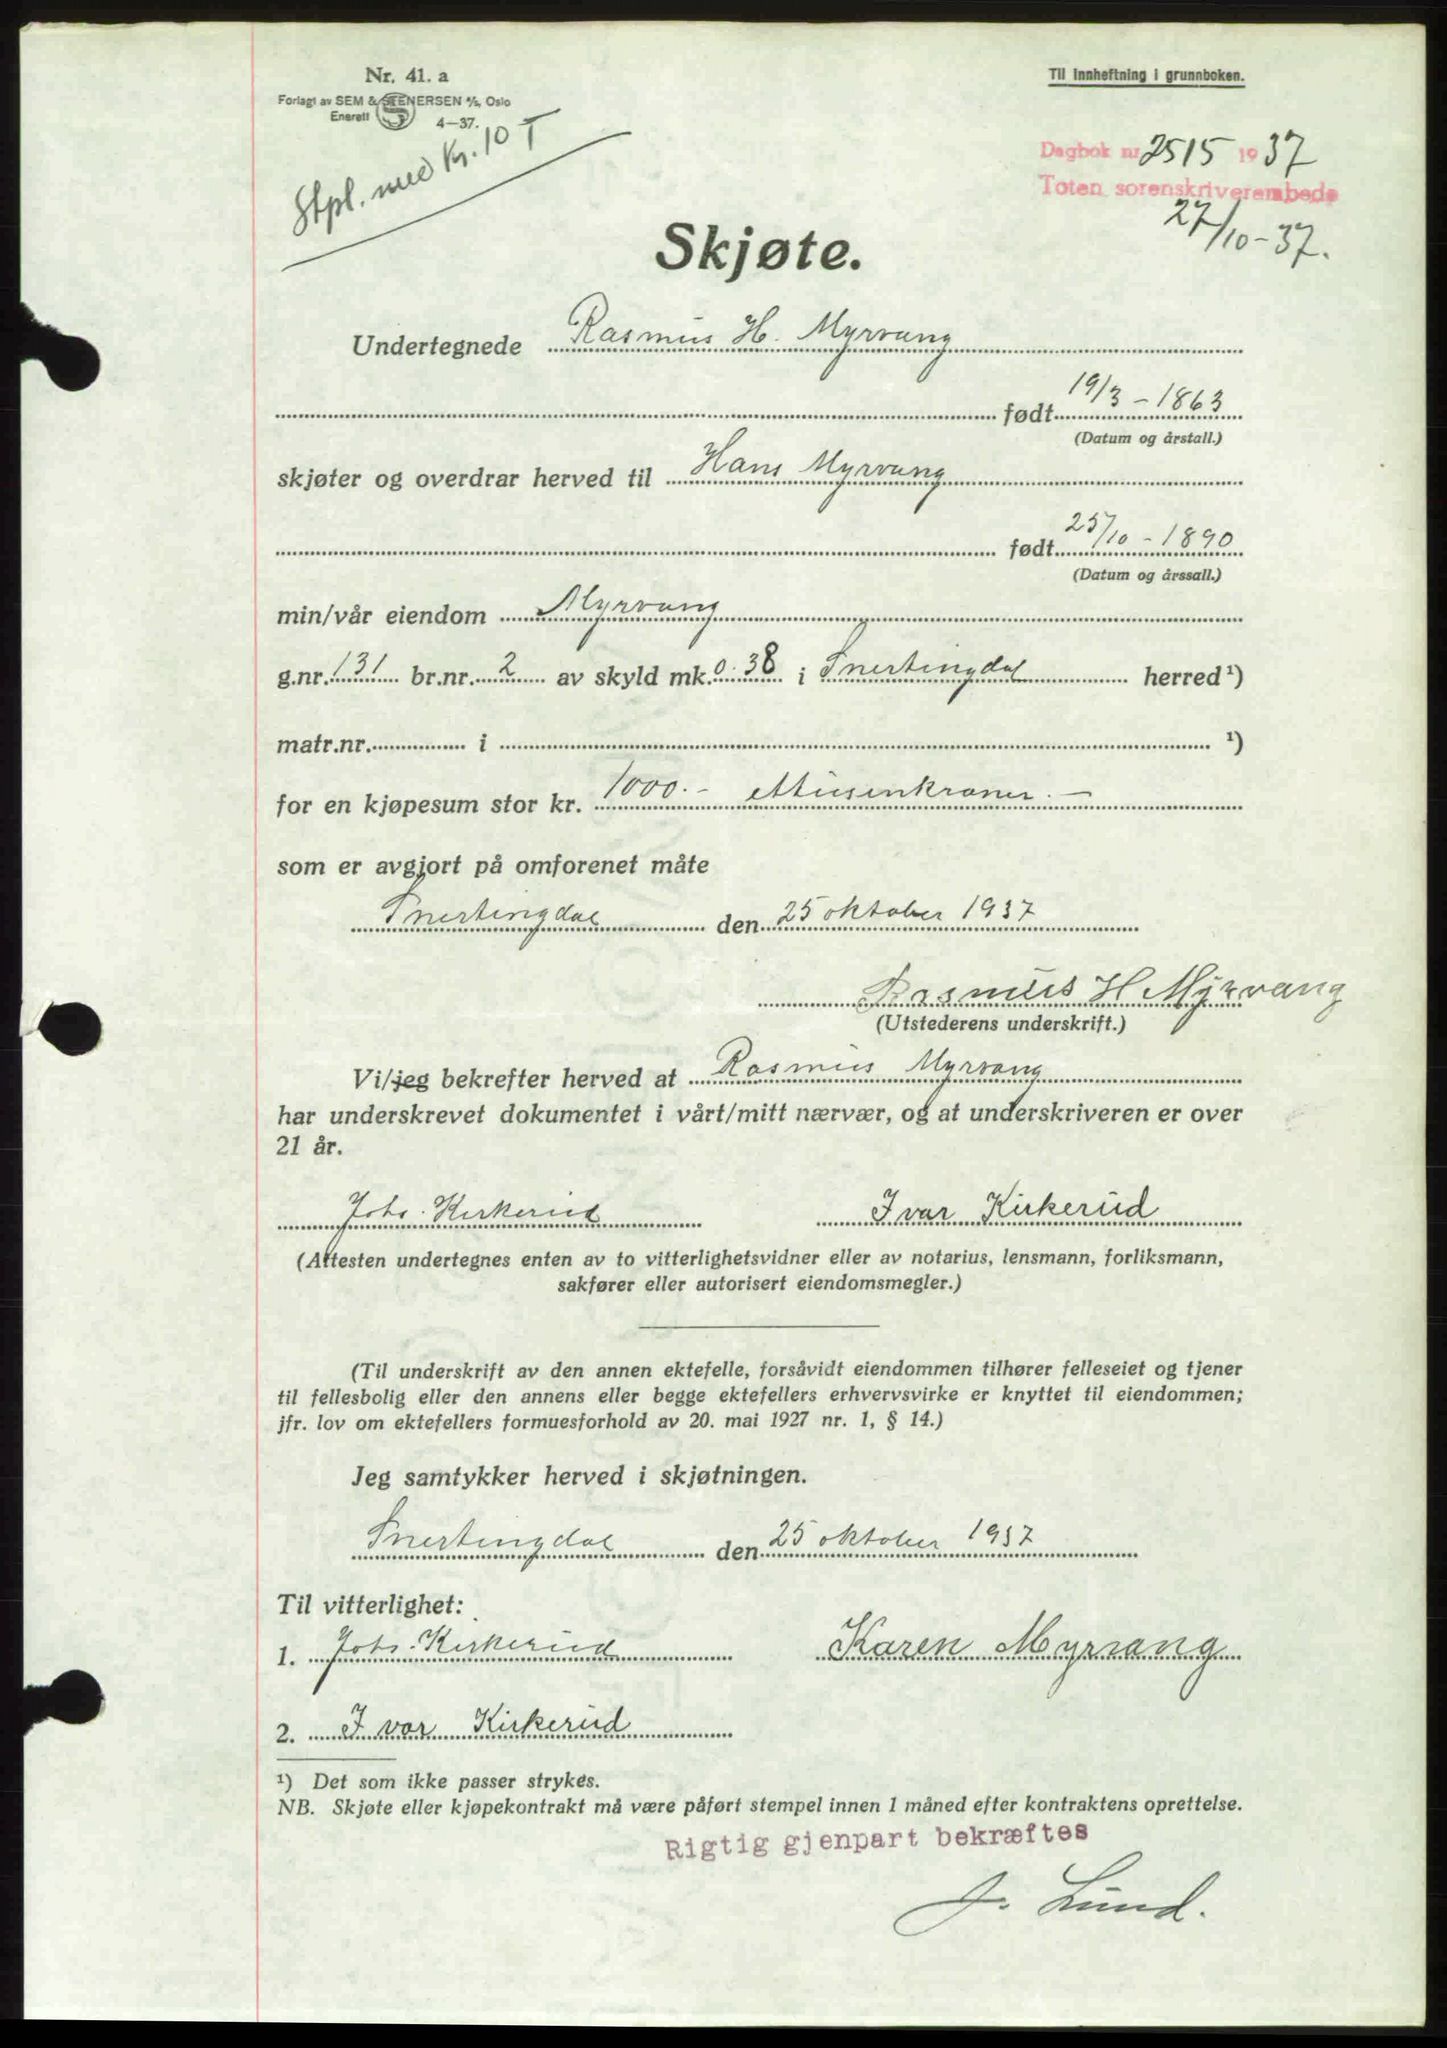 Nr. 41. a
Forlagt av SEM & STENERSEN A/S, Oslo
Enerett 4—37.
Til innheftning i grunnboken.
Stpl. med Kr. 10 T
Dagbok nr. 2515 1937
Toten sorenskriverembede
27/10-37.
Skjøte.
Undertegnede Rasmus H. Myrvang
født 19/3 - 1863
(Datum og årstall.)
skjøter og overdrar herved til Hans Myrvang
født 25/10 - 1890
(Datum og årssall.)
min/vår eiendom Myrvang
g.nr. 131 br.nr. 2 av skyld mk. 0.38 i Snertingdal herred ¹)
matr.nr. i ¹)
for en kjøpesum stor kr. 1000.- ettusenkroner.-
som er avgjort på omforenet måte
Snertingdal den 25 oktober 1937
Rasmus H Myrvang
(Utstederens underskrift.)
Vi/jeg bekrefter herved at Rasmus Myrvang
har underskrevet dokumentet i vårt/mitt nærvær, og at underskriveren er over
21 år.
Johs. Kirkerud Ivar Kirkerud
(Attesten undertegnes enten av to vitterlighetsvidner eller av notarius, lensmann, forliksmann,
sakfører eller autorisert eiendomsmegler.)
(Til underskrift av den annen ektefelle, forsåvidt eiendommen tilhører felleseiet og tjener
til fellesbolig eller den annens eller begge ektefellers erhvervsvirke er knyttet til eiendommen;
jfr. lov om ektefellers formuesforhold av 20. mai 1927 nr. 1, § 14.)
Jeg samtykker herved i skjøtningen.
Snertingdal den 25 oktober 1937
Til vitterlighet:
1. Johs. Kirkerud Karen Myrvang
2. Ivar Kirkerud
¹) Det som ikke passer strykes.
NB. Skjøte eller kjøpekontrakt må være påført stempel innen 1 måned efter kontraktens oprettelse.
Rigtig gjenpart bekræftes
J. Lund.